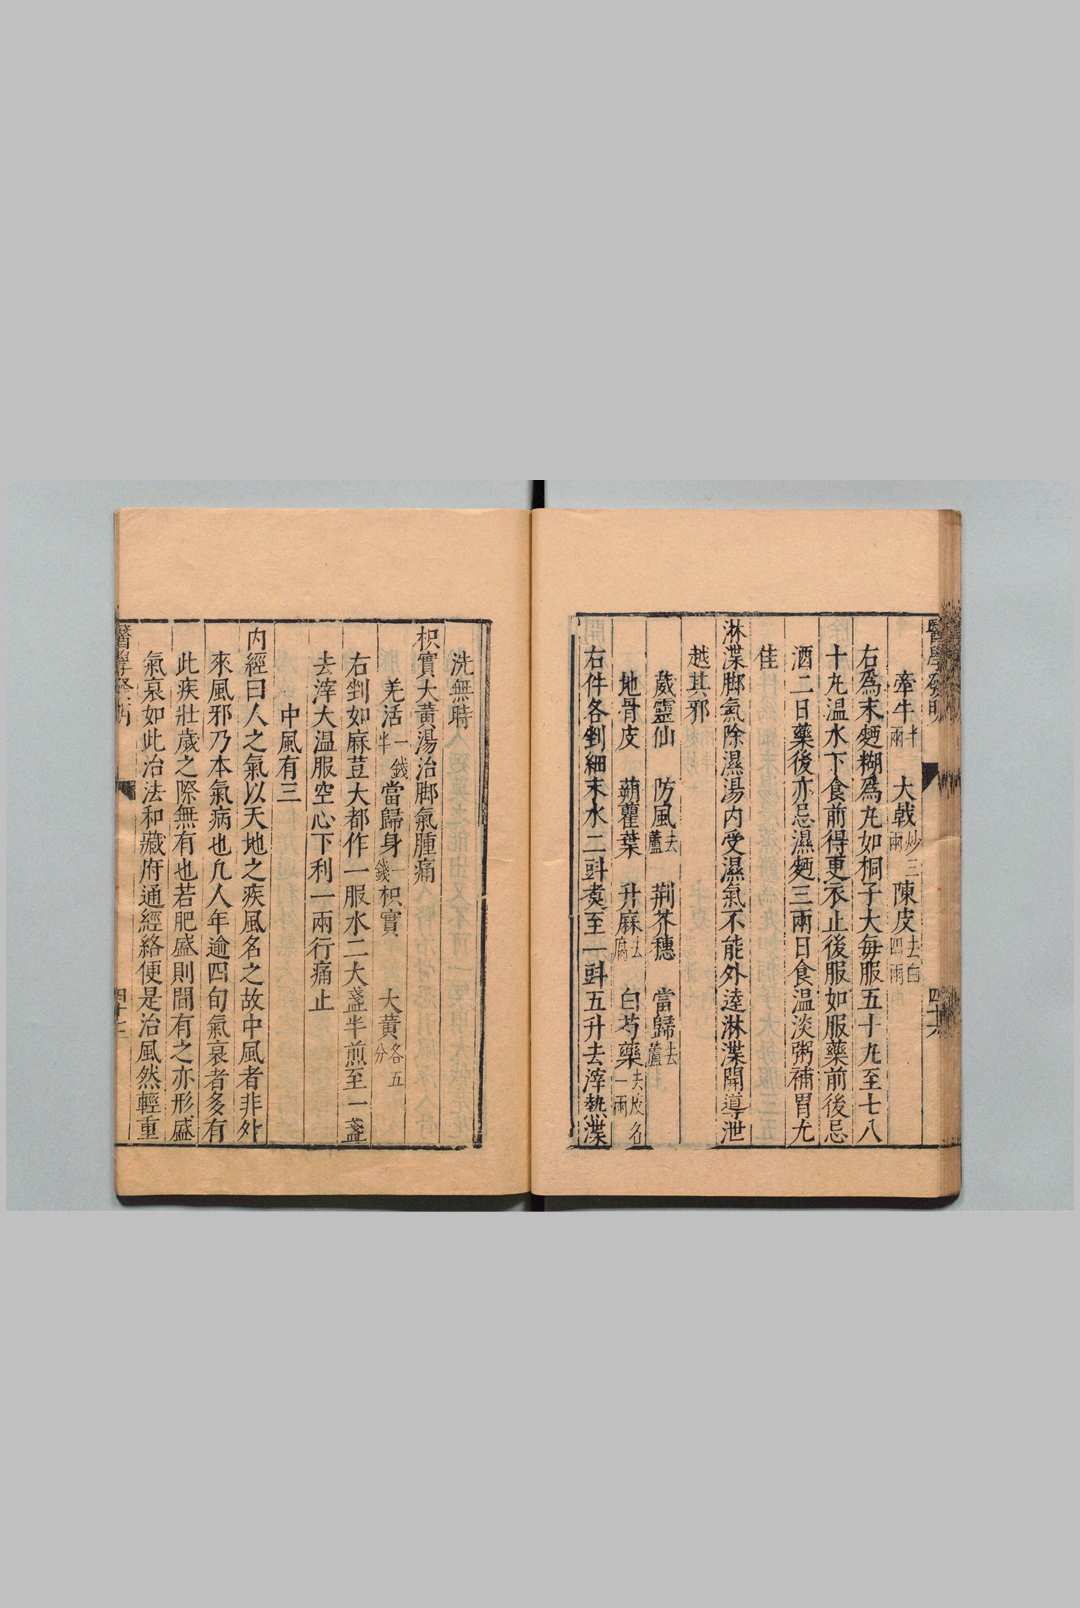 醫學發明
四十六
牽牛半兩 大戟炒三兩 陳皮去白四兩
右爲末麪糊爲丸如桐子大每服五十丸至七八
十丸温水下食前得更衣止後服如服藥前後忌
酒二日藥後亦忌濕麪三兩日食温淡粥補胃尤
佳
淋渫脚氣除濕湯内受濕氣不能外逹淋渫開導泄
越其邪
葳靈仙 防風去蘆 荆芥穗 當歸去蘆
地骨皮 蒴藋葉 升麻去腐 白芍藥去皮各一兩
右件各剉細末水二㪷煑至一㪷五升去滓熱渫
洗無時
枳實大黄湯治脚氣腫痛
羌活一錢半 當歸身一錢 枳實 大黄各五分
右剉如麻荳大都作一服水二大盞半煎至一盞
去滓大温服空心下利一兩行痛止
中風有三
内經曰人之氣以天地之疾風名之故中風者非外
來風邪乃本氣病也凢人年逾四旬氣衰者多有
此疾壯歲之際無有也若肥盛則間有之亦形盛
氣衰如此治法和藏府通經絡便是治風然輕重
醫學發明
四十七